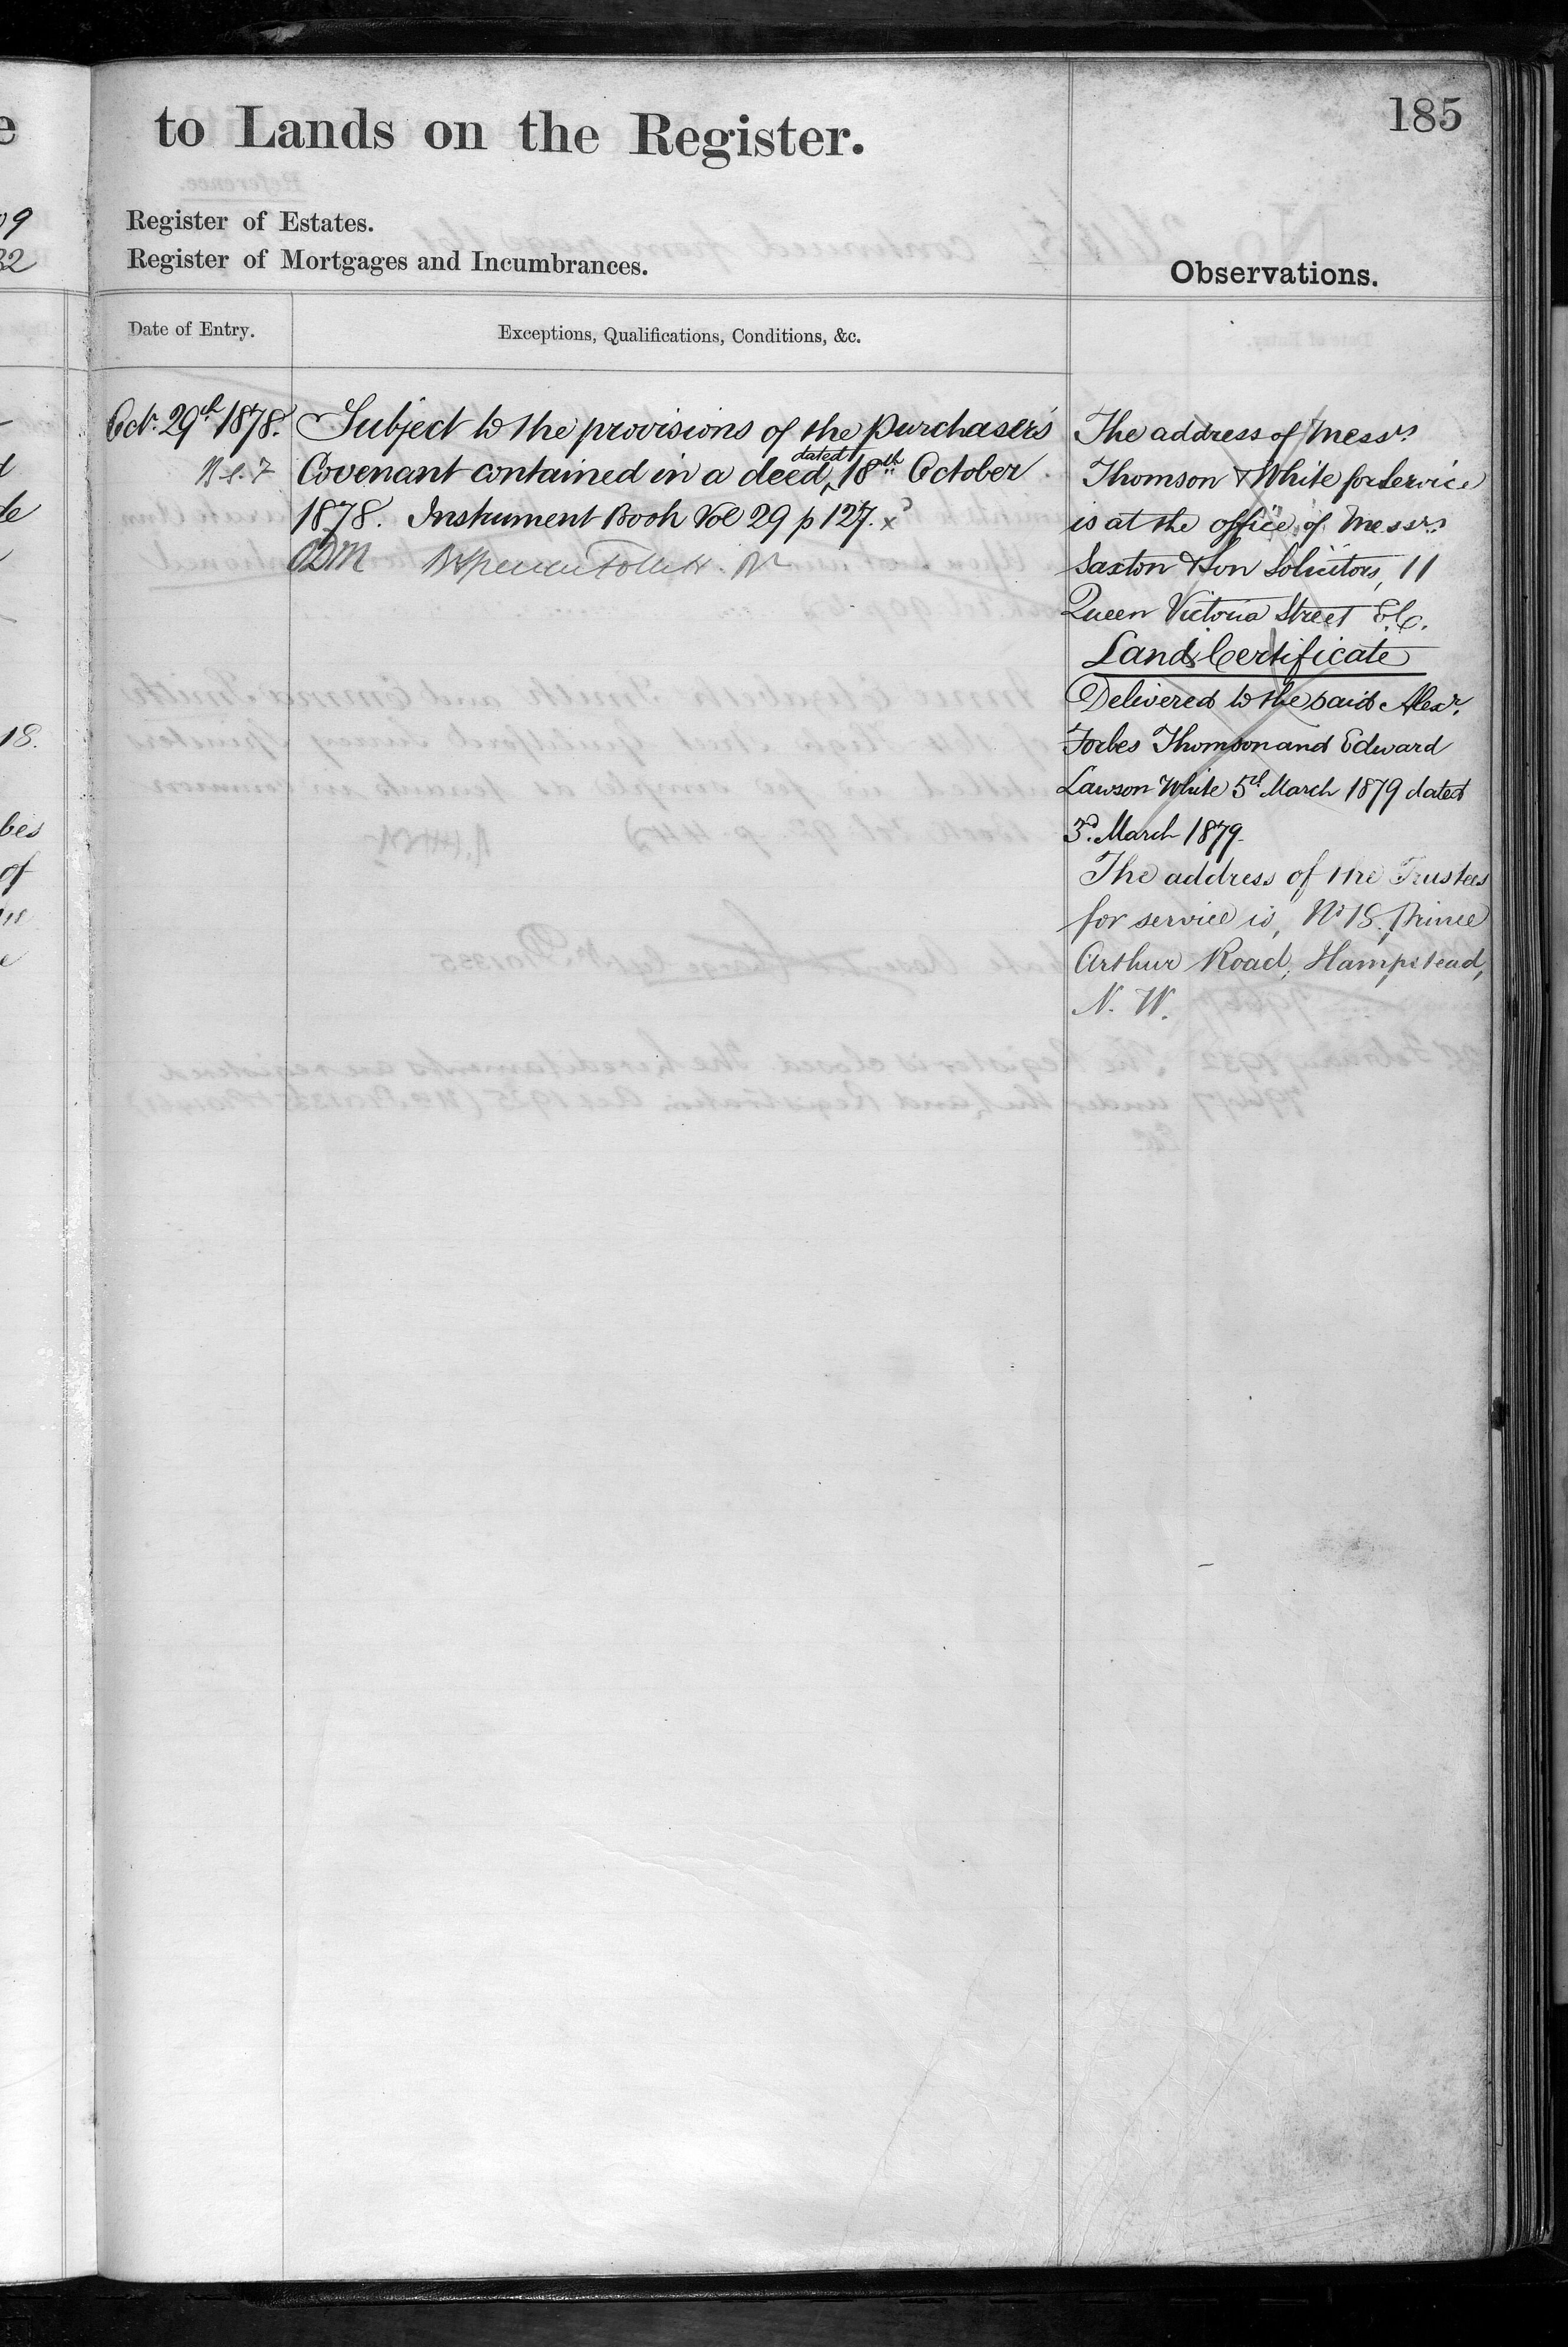 185
to Lands on the Register.
Register of Estates.
Register of Mortgages and Incumbrances.
Observations.
Date of Entry.
Exceptions, Qualifications, Conditions, &c.
Oct. 29th 1878.
Subject to the provisions of the purchasers
Covenant contained in a deed, dated 18th October
1878. Instrument Book Vol 29 p 127. x
The address of Messrs
Thomson & White for service
is at the office of Messrs
Saxton & Son Solicitors, 11
Queen Victoria Street E.C.
Land Certificate
Delivered to the said Alexr.
Forbes Thomson and Edward
Lawson White 5th March 1879 dated
3d. March 1879.
The address of the Trustees
for service is, No 18. Prince
Arthur Road, Hampstead,
N. W.
09
32
18.
bes
of